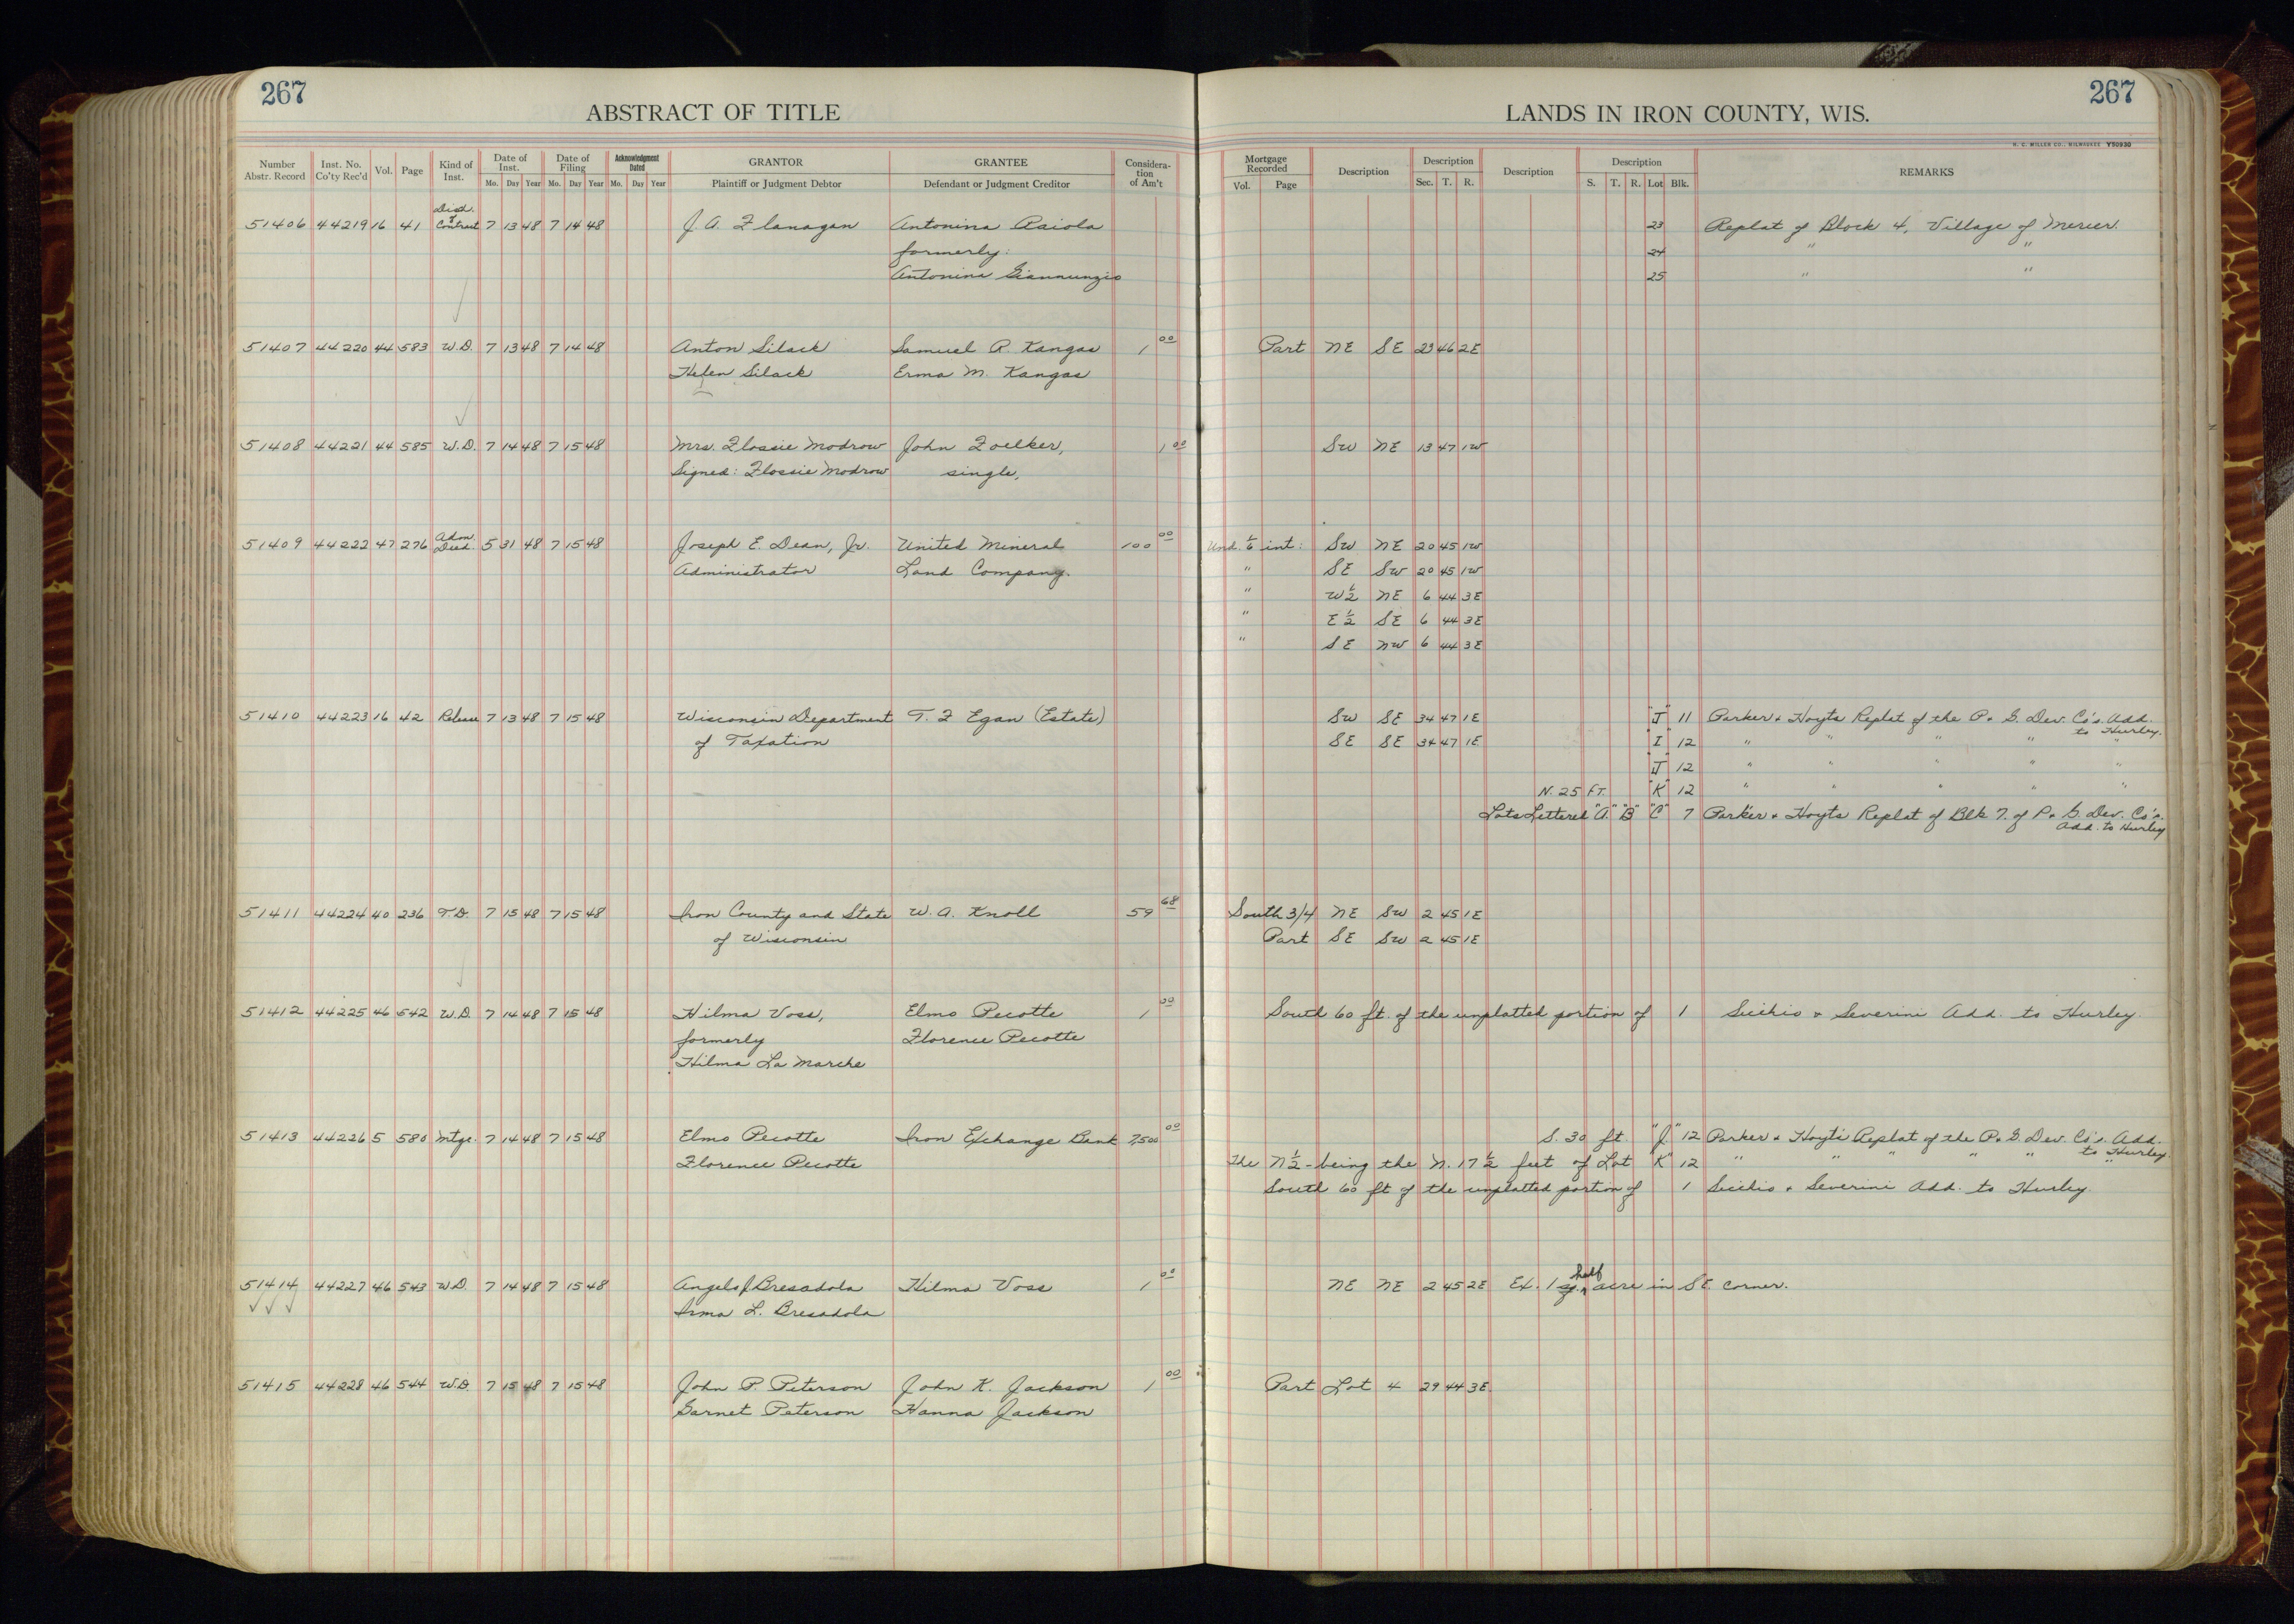 267
ABSTRACT OF TITLE
LANDS IN IRON COUNTY, WIS.
267
H. C. MILLER CO., MILWAUKEE Y50930
Number Abstr. Record | Inst. No. Co'ty Rec'd | Vol. | Page | Kind of Inst. | Date of Inst. Mo. Day Year | Date of Filing Mo. Day Year | Acknowledgment Dated Mo. Day Year | GRANTOR Plaintiff or Judgment Debtor | GRANTEE Defendant or Judgment Creditor | Considera-tion of Am't | Mortgage Recorded Vol. Page | Description | Description Sec. T. R. | Description | Description S. T. R. Lot Blk. | REMARKS
51406 44219 16 41 Deed & Contract 7 13 48 7 14 48 J. A. Flanagan Antonina Raiola 23 Replat of Block 4, Village of Mercer.
formerly: 24 " "
Antonina Giannunzio 25 " "
51407 44220 44 583 W.D. 7 13 48 7 14 48 Anton Silack Samuel R. Kangas 1 00 Part NE SE 23 46 2E
Helen Silack Erma M. Kangas
51408 44221 44 585 W.D. 7 14 48 7 15 48 Mrs. Flossie Modrow John Foelker, 1 00 SW NE 13 47 1W
Signed: Flossie Modrow single,
51409 44222 47 276 Adm. Deed. 5 31 48 7 15 48 Joseph E. Dean, Jr. United Mineral 100 00 Und. 1/6 int: SW NE 20 45 1W
Administrator Land Company. " SE SW 20 45 1W
" W 1/2 NE 6 44 3E
" E 1/2 SE 6 44 3E
" SE NW 6 44 3E
51410 44223 16 42 Release 7 13 48 7 15 48 Wisconsin Department T. F Egan (Estate) SW SE 34 47 1E "J" 11 Parker & Hoyts Replat of the P. & G. Dev. Co's. Add. to Hurley.
of Taxation SE SE 34 47 1E "I" 12 " " " " "
"J" 12 " " " " "
N. 25 FT. "K" 12 " " " " "
Lots Lettered "A" "B" "C" 7 Parker & Hoyts Replat of Blk 7. of P. & G. Dev. Co's. Add. to Hurley
51411 44224 40 236 T.D. 7 15 48 7 15 48 Iron County and State W. A. Knoll 59 68 South 3/4 NE SW 2 45 1E
of Wisconsin Part SE SW 2 45 1E
51412 44225 46 542 W.D. 7 14 48 7 15 48 Hilma Voss, Elmo Pecotte 1 00 South 60 ft. of the unplatted portion of 1 Sicchio & Severini Add. to Hurley.
formerly Florence Pecotte
Hilma La Marche
51413 44226 5 580 Mtge. 7 14 48 7 15 48 Elmo Pecotte Iron Exchange Bank 7,500 00 S. 30 ft. "J" 12 Parker & Hoyt's Replat of the P. & G. Dev. Co's. Add. to Hurley.
Florence Pecotte The N 1/2 - being the N. 17 1/2 feet of Lot "K" 12 " " " " " "
South 60 ft of the unplatted portion of 1 Sicchio & Severini Add. to Hurley.
51414 44227 46 543 W.D. 7 14 48 7 15 48 Angelo J Bresadola Hilma Voss 1 00 NE NE 2 45 2E Ex. 1 sq. half acre in SE. corner.
Irma L. Bresadola
51415 44228 46 544 W.D. 7 15 48 7 15 48 John P. Peterson John K. Jackson 1 00 Part Lot 4 29 44 3E.
Garnet Peterson Hanna Jackson